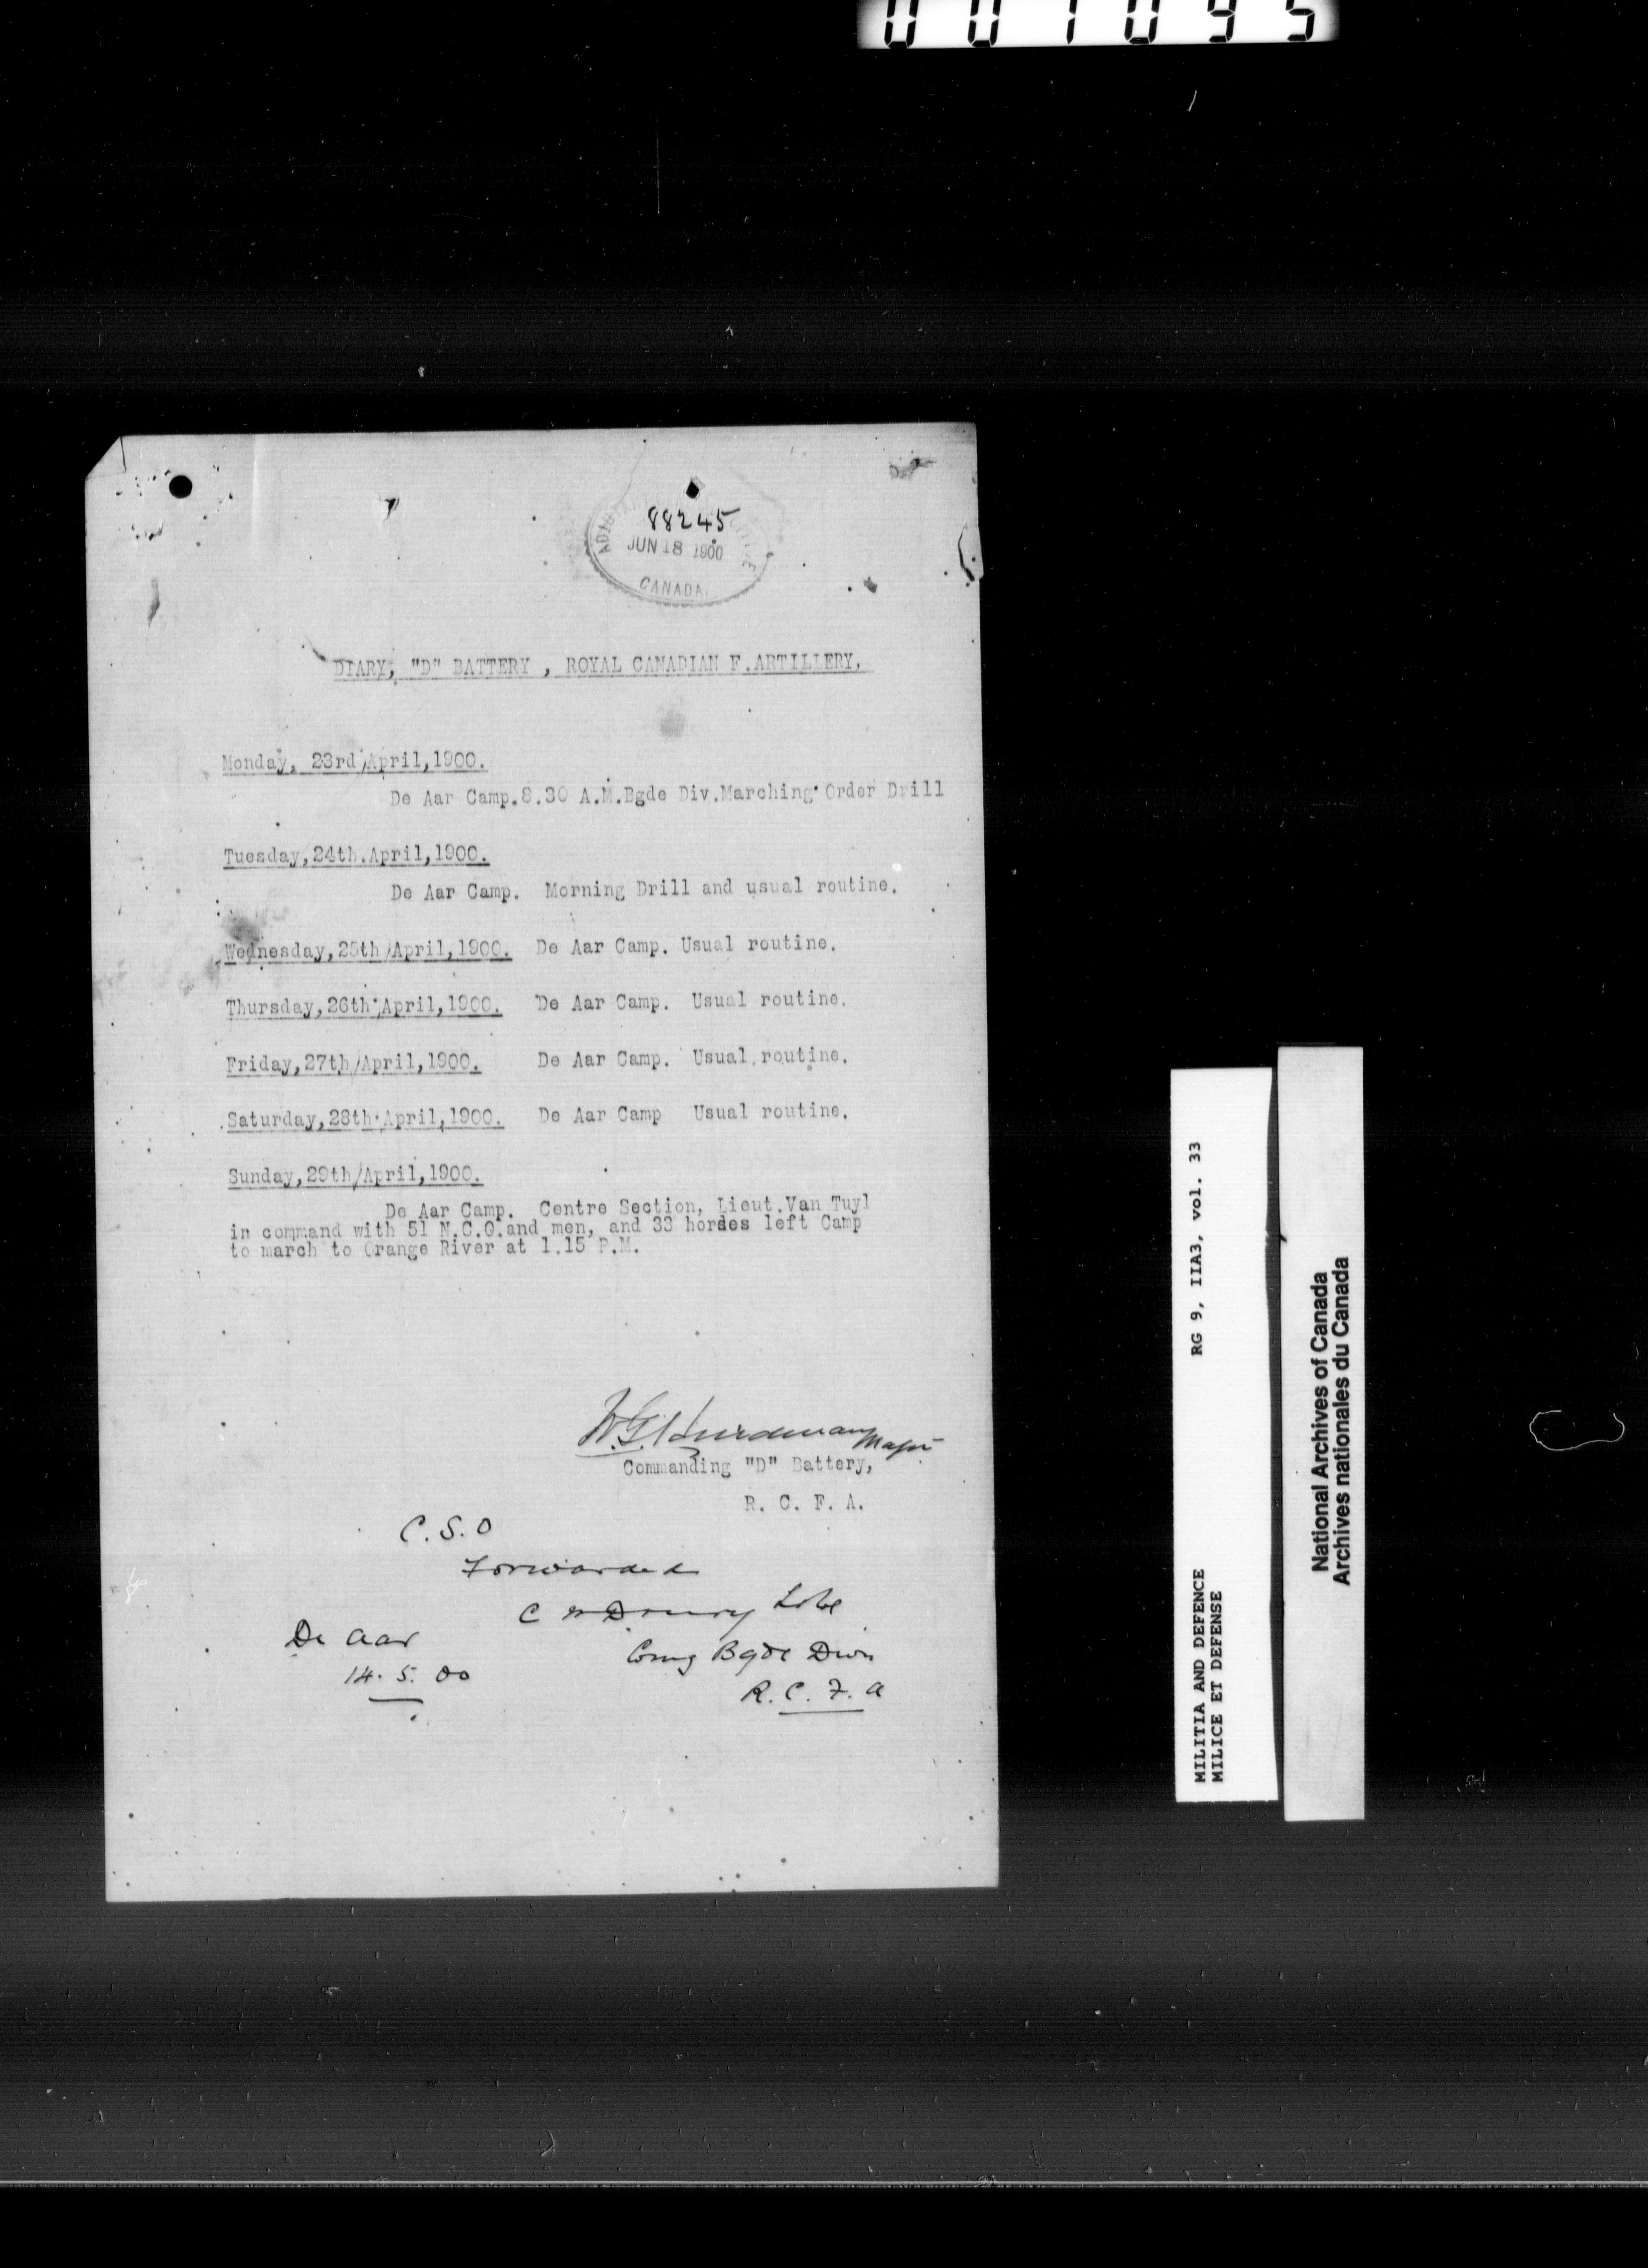 001095
88245
ADJUTANT
JUN 18 1900
CANADA.
DIARY, "D" BATTERY , ROYAL CANADIAN F.ARTILLERY,
Monday, 23rd/April,1900.
De Aar Camp.8.30 A.M.Bgde Div.Marching Order Drill
Tuesday,24th.April,1900.
De Aar Camp. Morning Drill and usual routine.
Wednesday,25th/April,1900. De Aar Camp. Usual routine.
Thursday,26th/April,1900. De Aar Camp. Usual routine.
Friday,27th/April,1900. De Aar Camp. Usual routine.
Saturday,28th April,1900. De Aar Camp Usual routine.
Sunday,29th/April,1900.
De Aar Camp. Centre Section, Lieut.Van Tuyl
in command with 51 N.C.O.and men, and 33 horses left Camp
to march to Orange River at 1.15 P.M.
W.G. Hurdman Major
Commanding "D" Battery,
R. C. F. A.
C.S.O
Forwarded
C W Drury
De Aar
Bgde Divn
14. 5. 00
R. C. F. A
RG 9, IIA3, vol. 33
MILITIA AND DEFENCE
MILICE ET DEFENSE
National Archives of Canada
Archives nationales du Canada